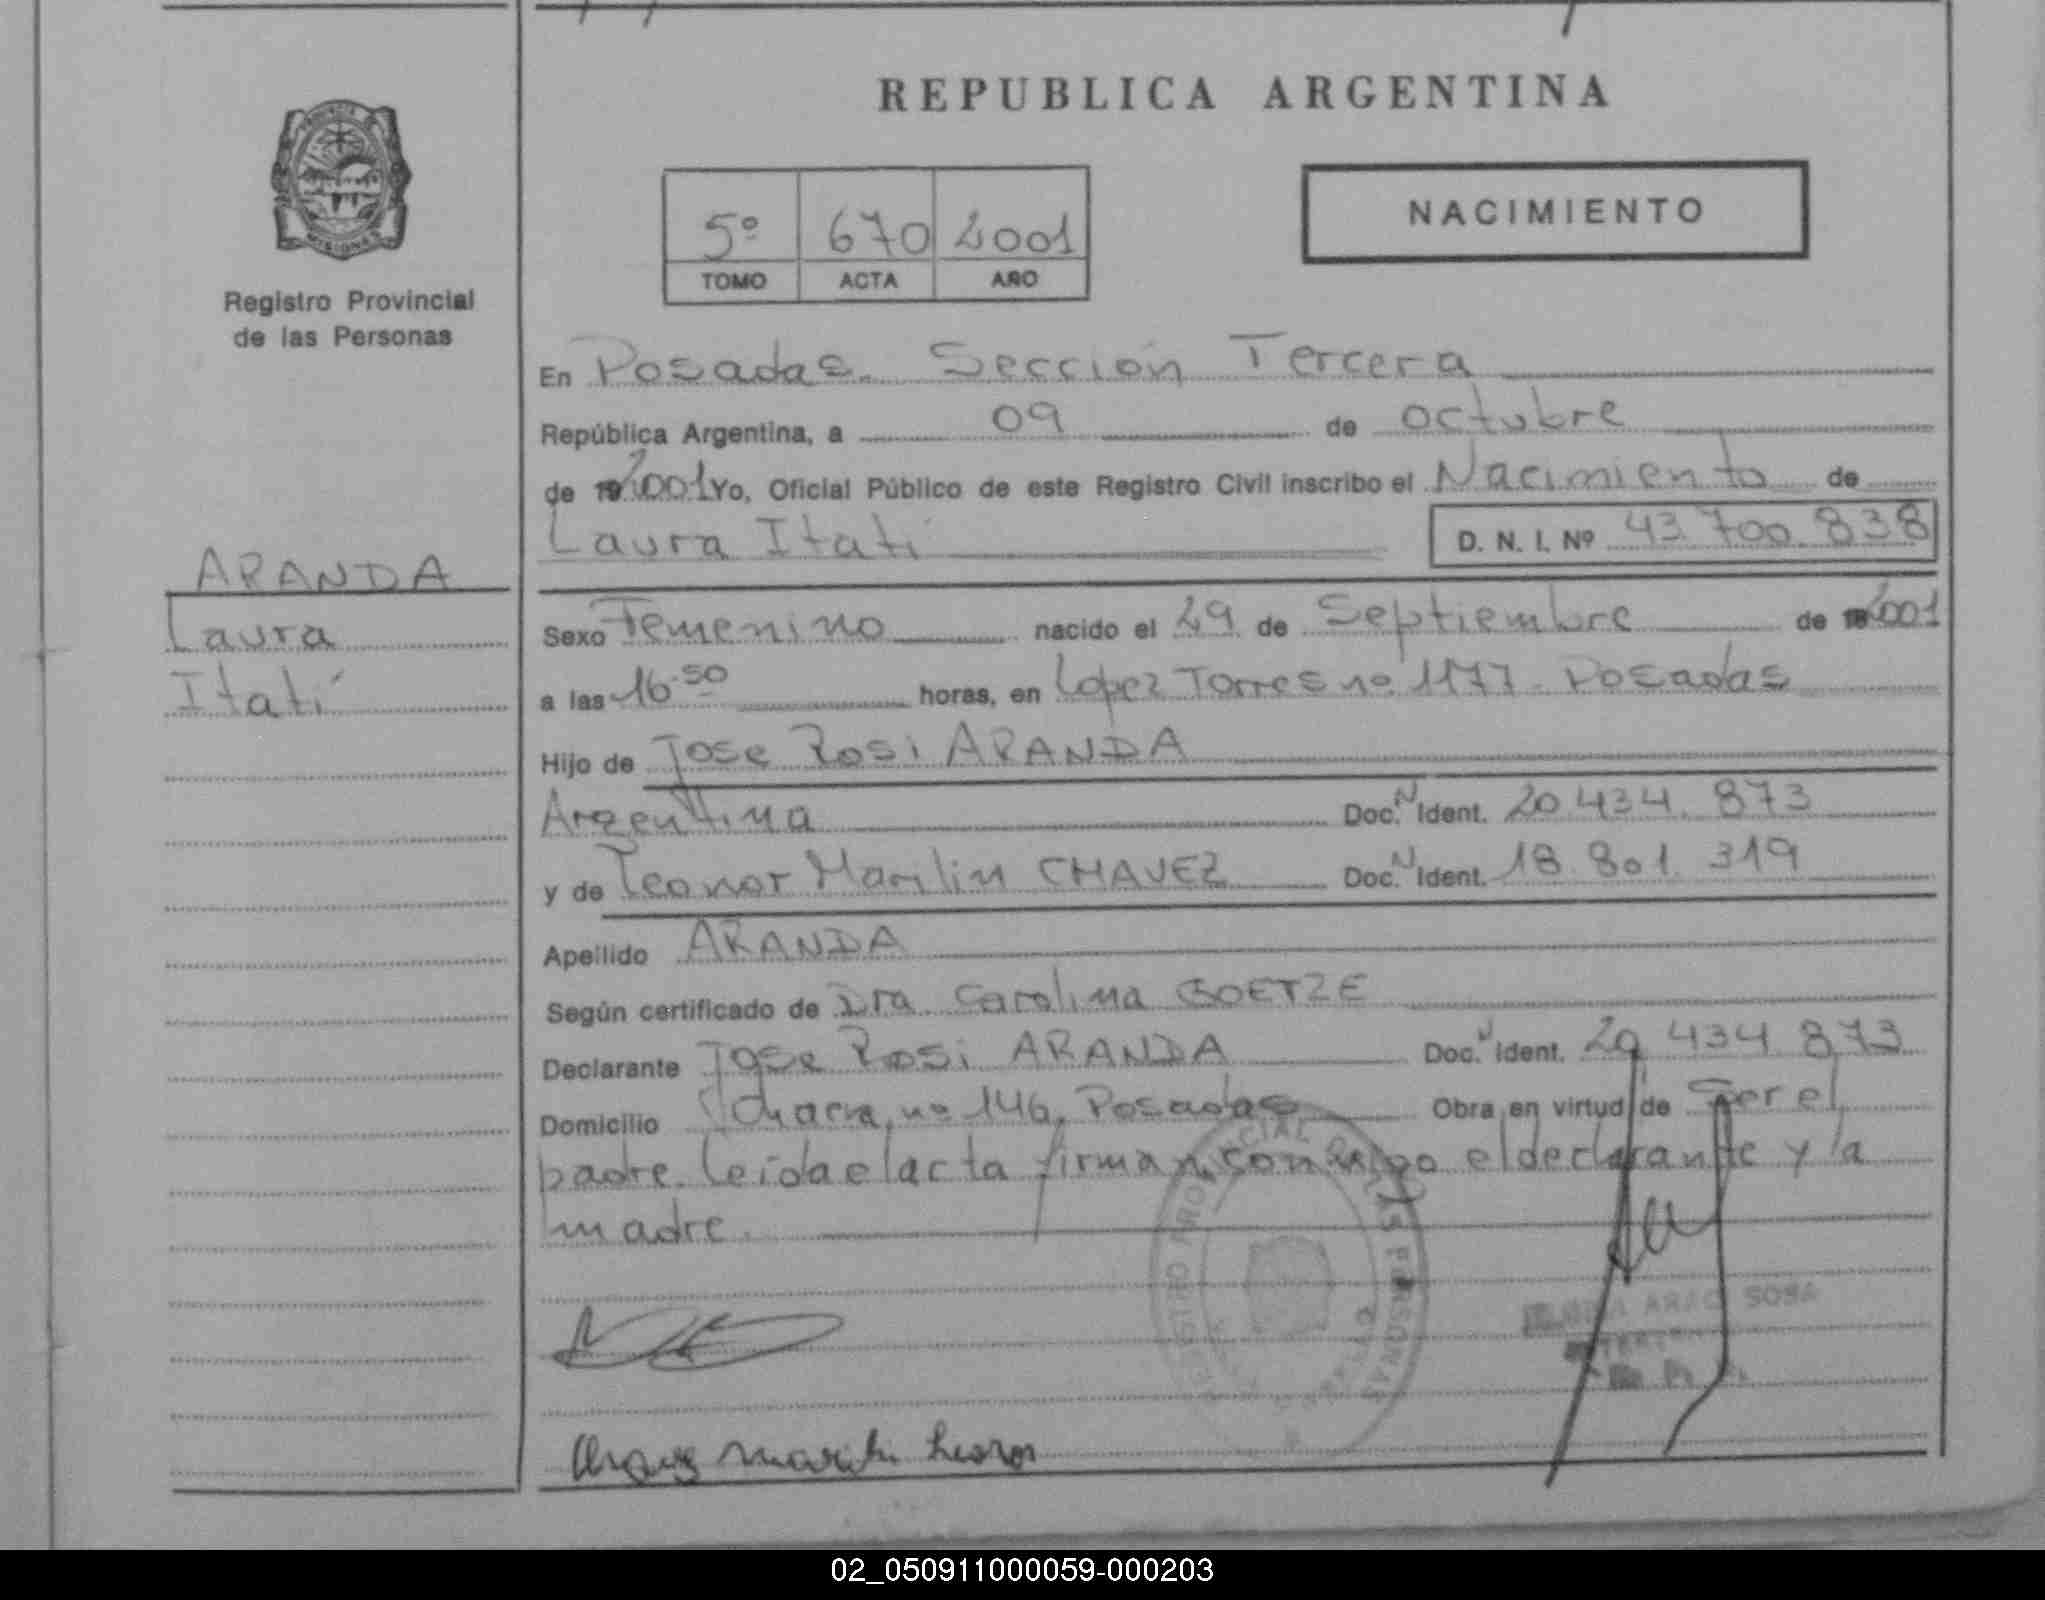 REPUBLICA ARGENTINA
PROVINCIA DE MISIONES
Registro Provincial
de las Personas
5º 670 2001
TOMO ACTA AÑO
NACIMIENTO
En Posadas. Sección Tercera
República Argentina, a 09 de octubre
de 19 2001 Yo, Oficial Público de este Registro Civil inscribo el Nacimiento de
Laura Itati
D. N. I. Nº 43.700.838
ARANDA
Laura
Itatí
Sexo Femenino nacido el 29 de Septiembre de 19 2001
a las 16.50 horas, en López Torres nº 1177. Posadas
Hijo de Jose Rosi ARANDA
Argentina Doc. N Ident. 20.434.873
y de Leonor Marilin CHAVEZ Doc. N Ident. 18.801.319
Apellido ARANDA
Según certificado de Dra. Carolina GOETZE
Declarante Jose Rosi ARANDA Doc. N Ident. 20 434 873
Domicilio Chacra nº 146, Posadas Obra en virtud de Ser el
padre. Leída el acta firman conmigo el declarante y la
madre.
REGISTRO PROVINCIAL DE LAS PERSONAS
SOSA
Chavez Marilin Leonor
02_050911000059-000203